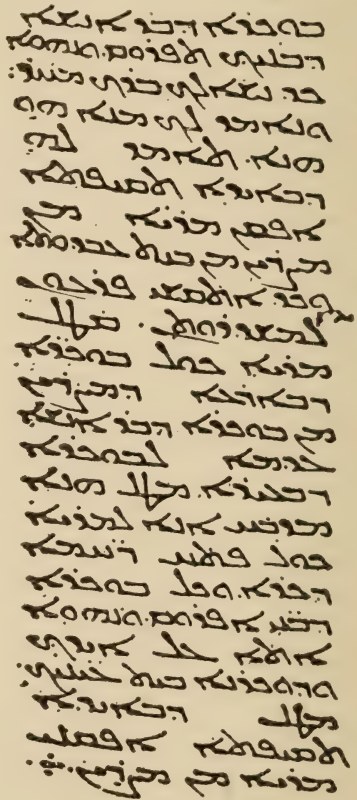 ܒܘܟܪܐ ܕܒܪ ܐܢܫܐ
ܕܒܢܝܟ ܬܦܪܘܩ. ܘܢܗܘܐ
ܟܕ ܢܫܐܠܟ ܒܪܟ ܡܚܪ.
ܘܢܐܡܪ ܠܟ ܡܢܐ ܗܘ
ܗܢܐ. ܬܐܡܪ ܠܗ
ܕܒܐܝܕܐ ܬܩܝܦܬܐ
ܐܦܩܢ ܡܪܝܐ ܡܢ
ܡܨܪܝܢ ܡܢ ܒܝܬ ܥܒܕܘܬܐ
ܘܟܕ ܐܬܩܫܝ ܦܪܥܘܢ
ܠܡܫܕܪܘܬܢ. ܩܛܠ
ܡܪܝܐ ܟܠ ܒܘܟܪܐ
ܕܒܐܪܥܐ ܕܡܨܪܝܢ
ܡܢ ܒܘܟܪܐ ܕܒܪ ܐܢܫܐ
ܥܕܡܐ ܠܒܘܟܪܐ
ܕܒܥܝܪܐ. ܡܛܠ ܗܢܐ
ܡܕܒܚ ܐܢܐ ܠܡܪܝܐ
ܟܠ ܦܬܚ ܪܚܡܐ
ܕܟܪܐ. ܘܟܠ ܒܘܟܪܐ
ܕܒܢܝ ܐܦܪܘܩ. ܘܢܗܘܐ
ܐܬܐ ܥܠ ܐܝܕܟ
ܘܕܘܟܪܢܐ ܒܝܬ ܥܝܢܝܟ.
ܡܛܠ ܕܒܐܝܕܐ
ܬܩܝܦܬܐ ܐܦܩܢ
ܡܪܝܐ ܡܢ ܡܨܪܝܢ.